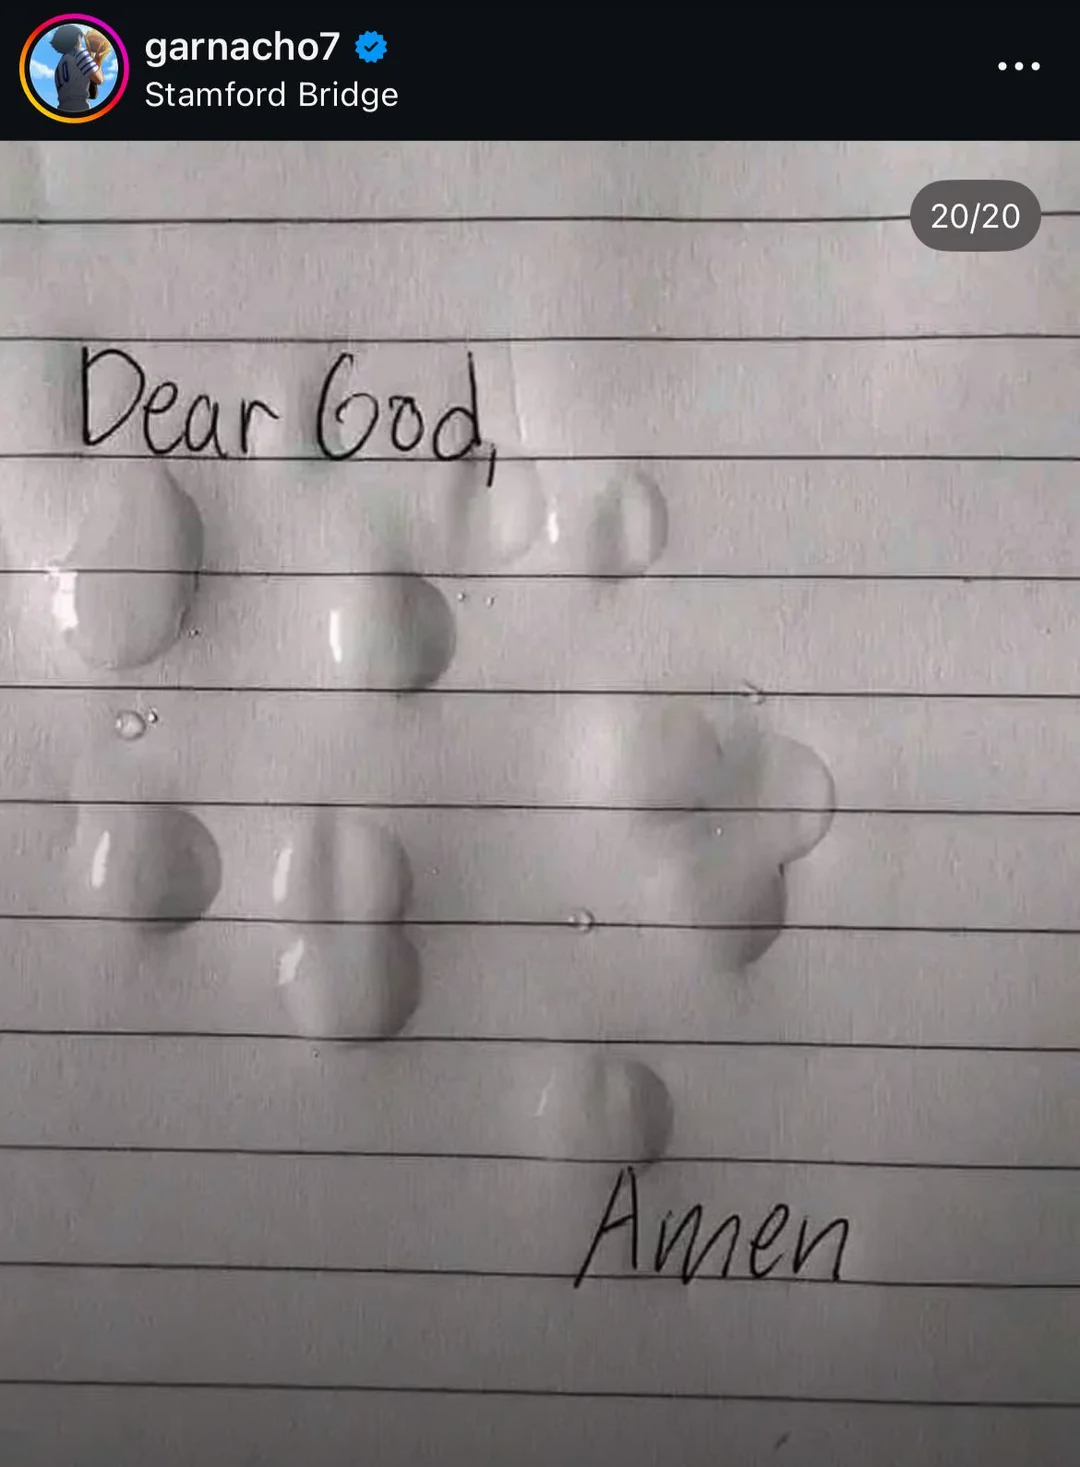 garnacho7
Stamford Bridge
20/20
Dear God,
Amen